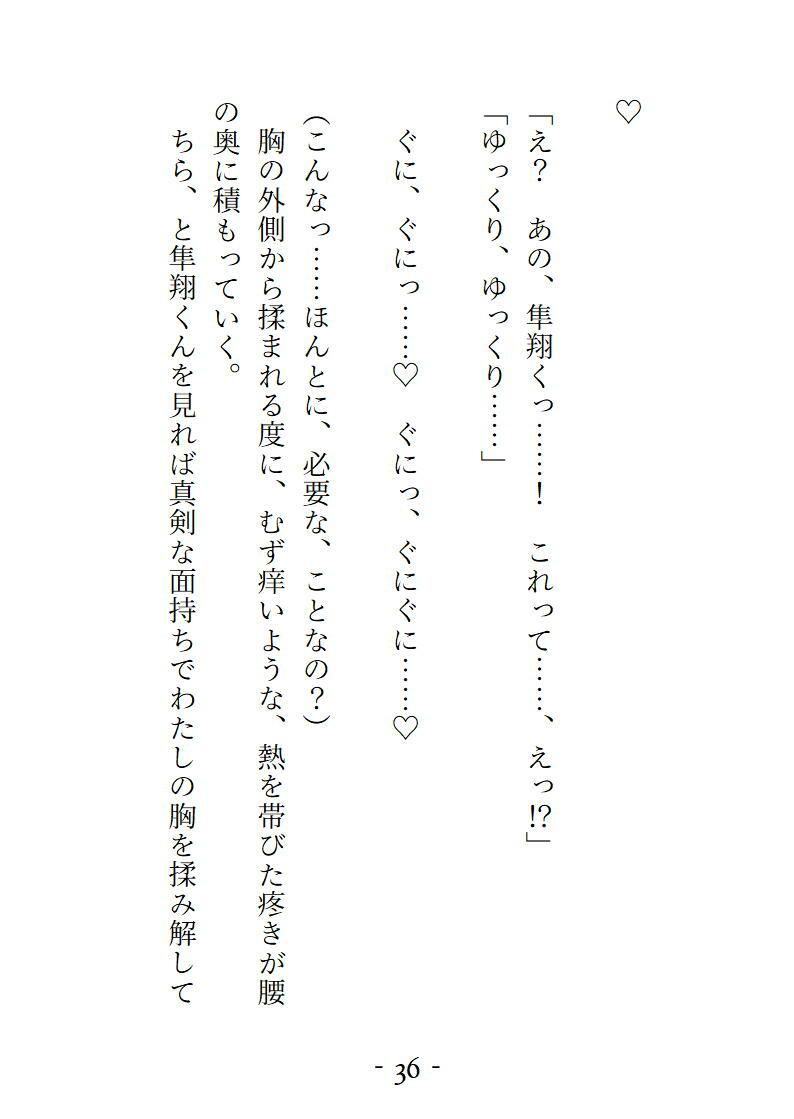 ♡
「え？　あの、隼翔くっ……！　これって……、えっ!?」
「ゆっくり、ゆっくり……」
ぐに、ぐにっ……♡　ぐにっ、ぐにぐに……♡
（こんなっ……ほんとに、必要な、ことなの？）
胸の外側から揉まれる度に、むず痒いような、熱を帯びた疼きが腰
の奥に積もっていく。
ちら、と隼翔くんを見れば真剣な面持ちでわたしの胸を揉み解して
- 36 -